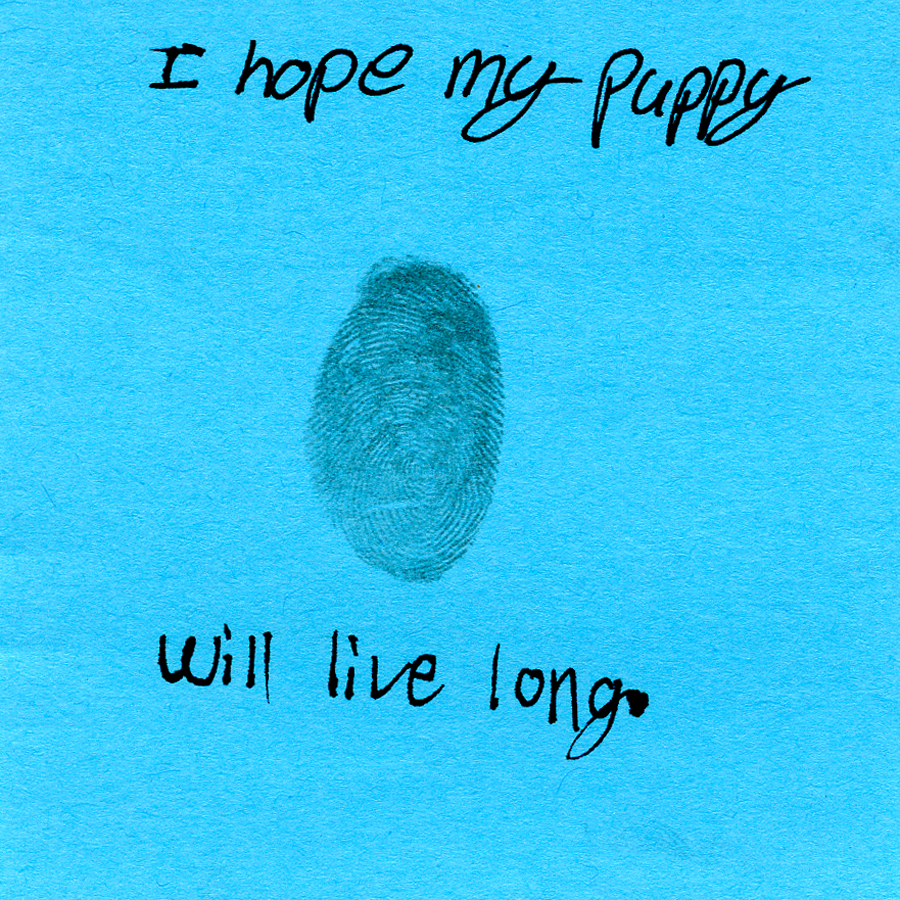 I hope my puppy
Will live long.